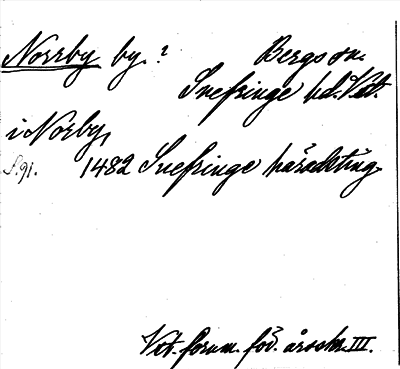 Norrby by. ? Bergs sn.
Snefringe hd. Vstm.
i Norby,
S. 91. 1482 Snefringe häradsting.
Vst. fornm. för. årsskr. III.